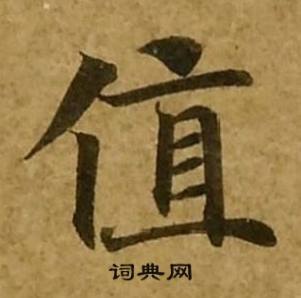 值
词典网